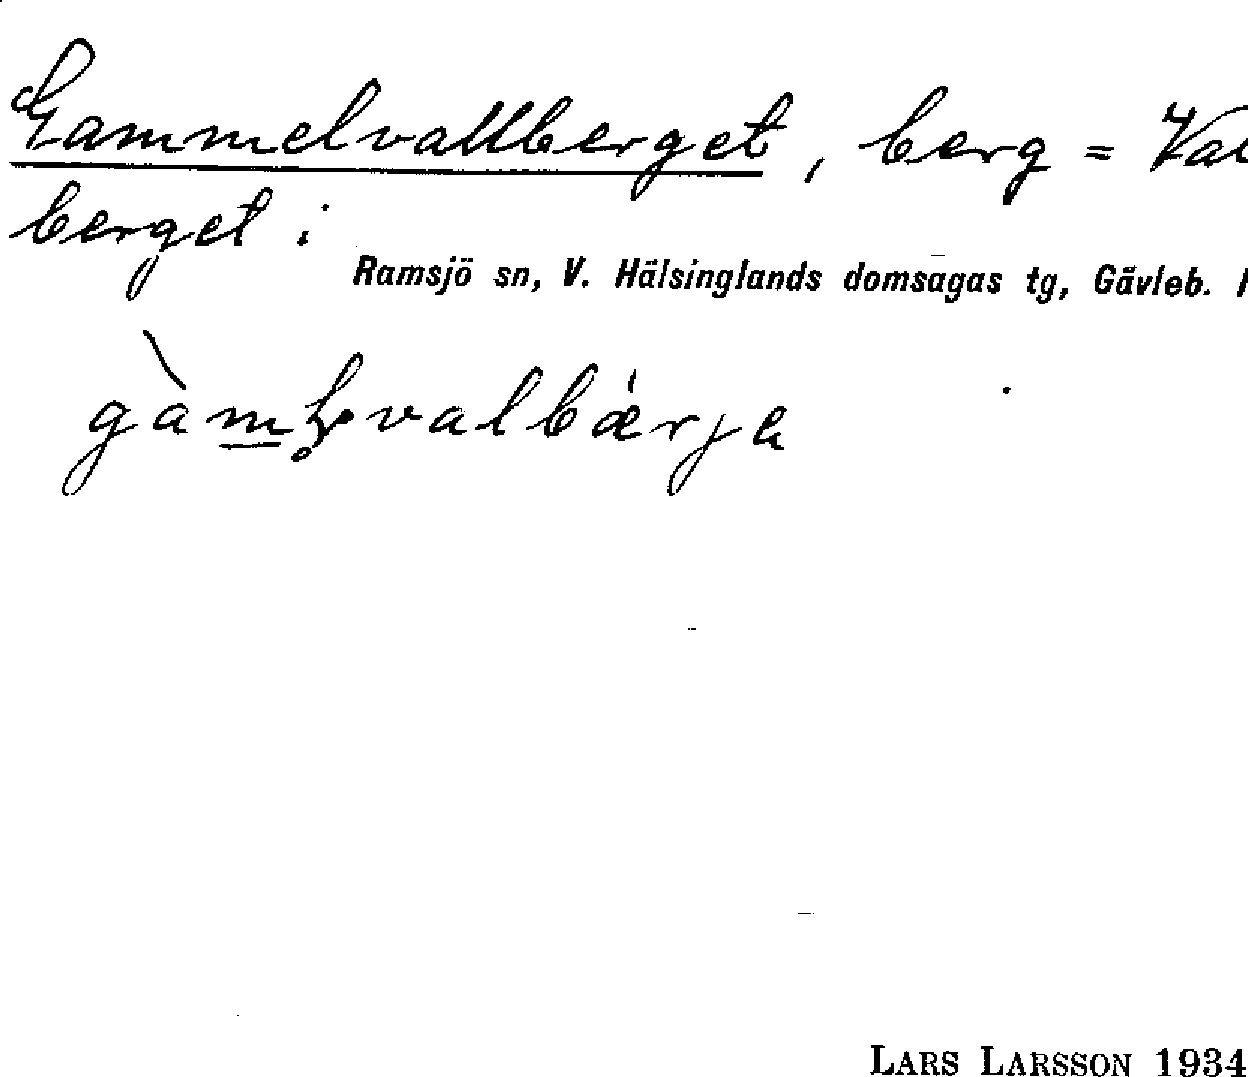 Gammelvallberget, berg = Val
berget i
Ramsjö sn, V. Hälsinglands domsagas tg, Gävleb.
LARS LARSSON 1934